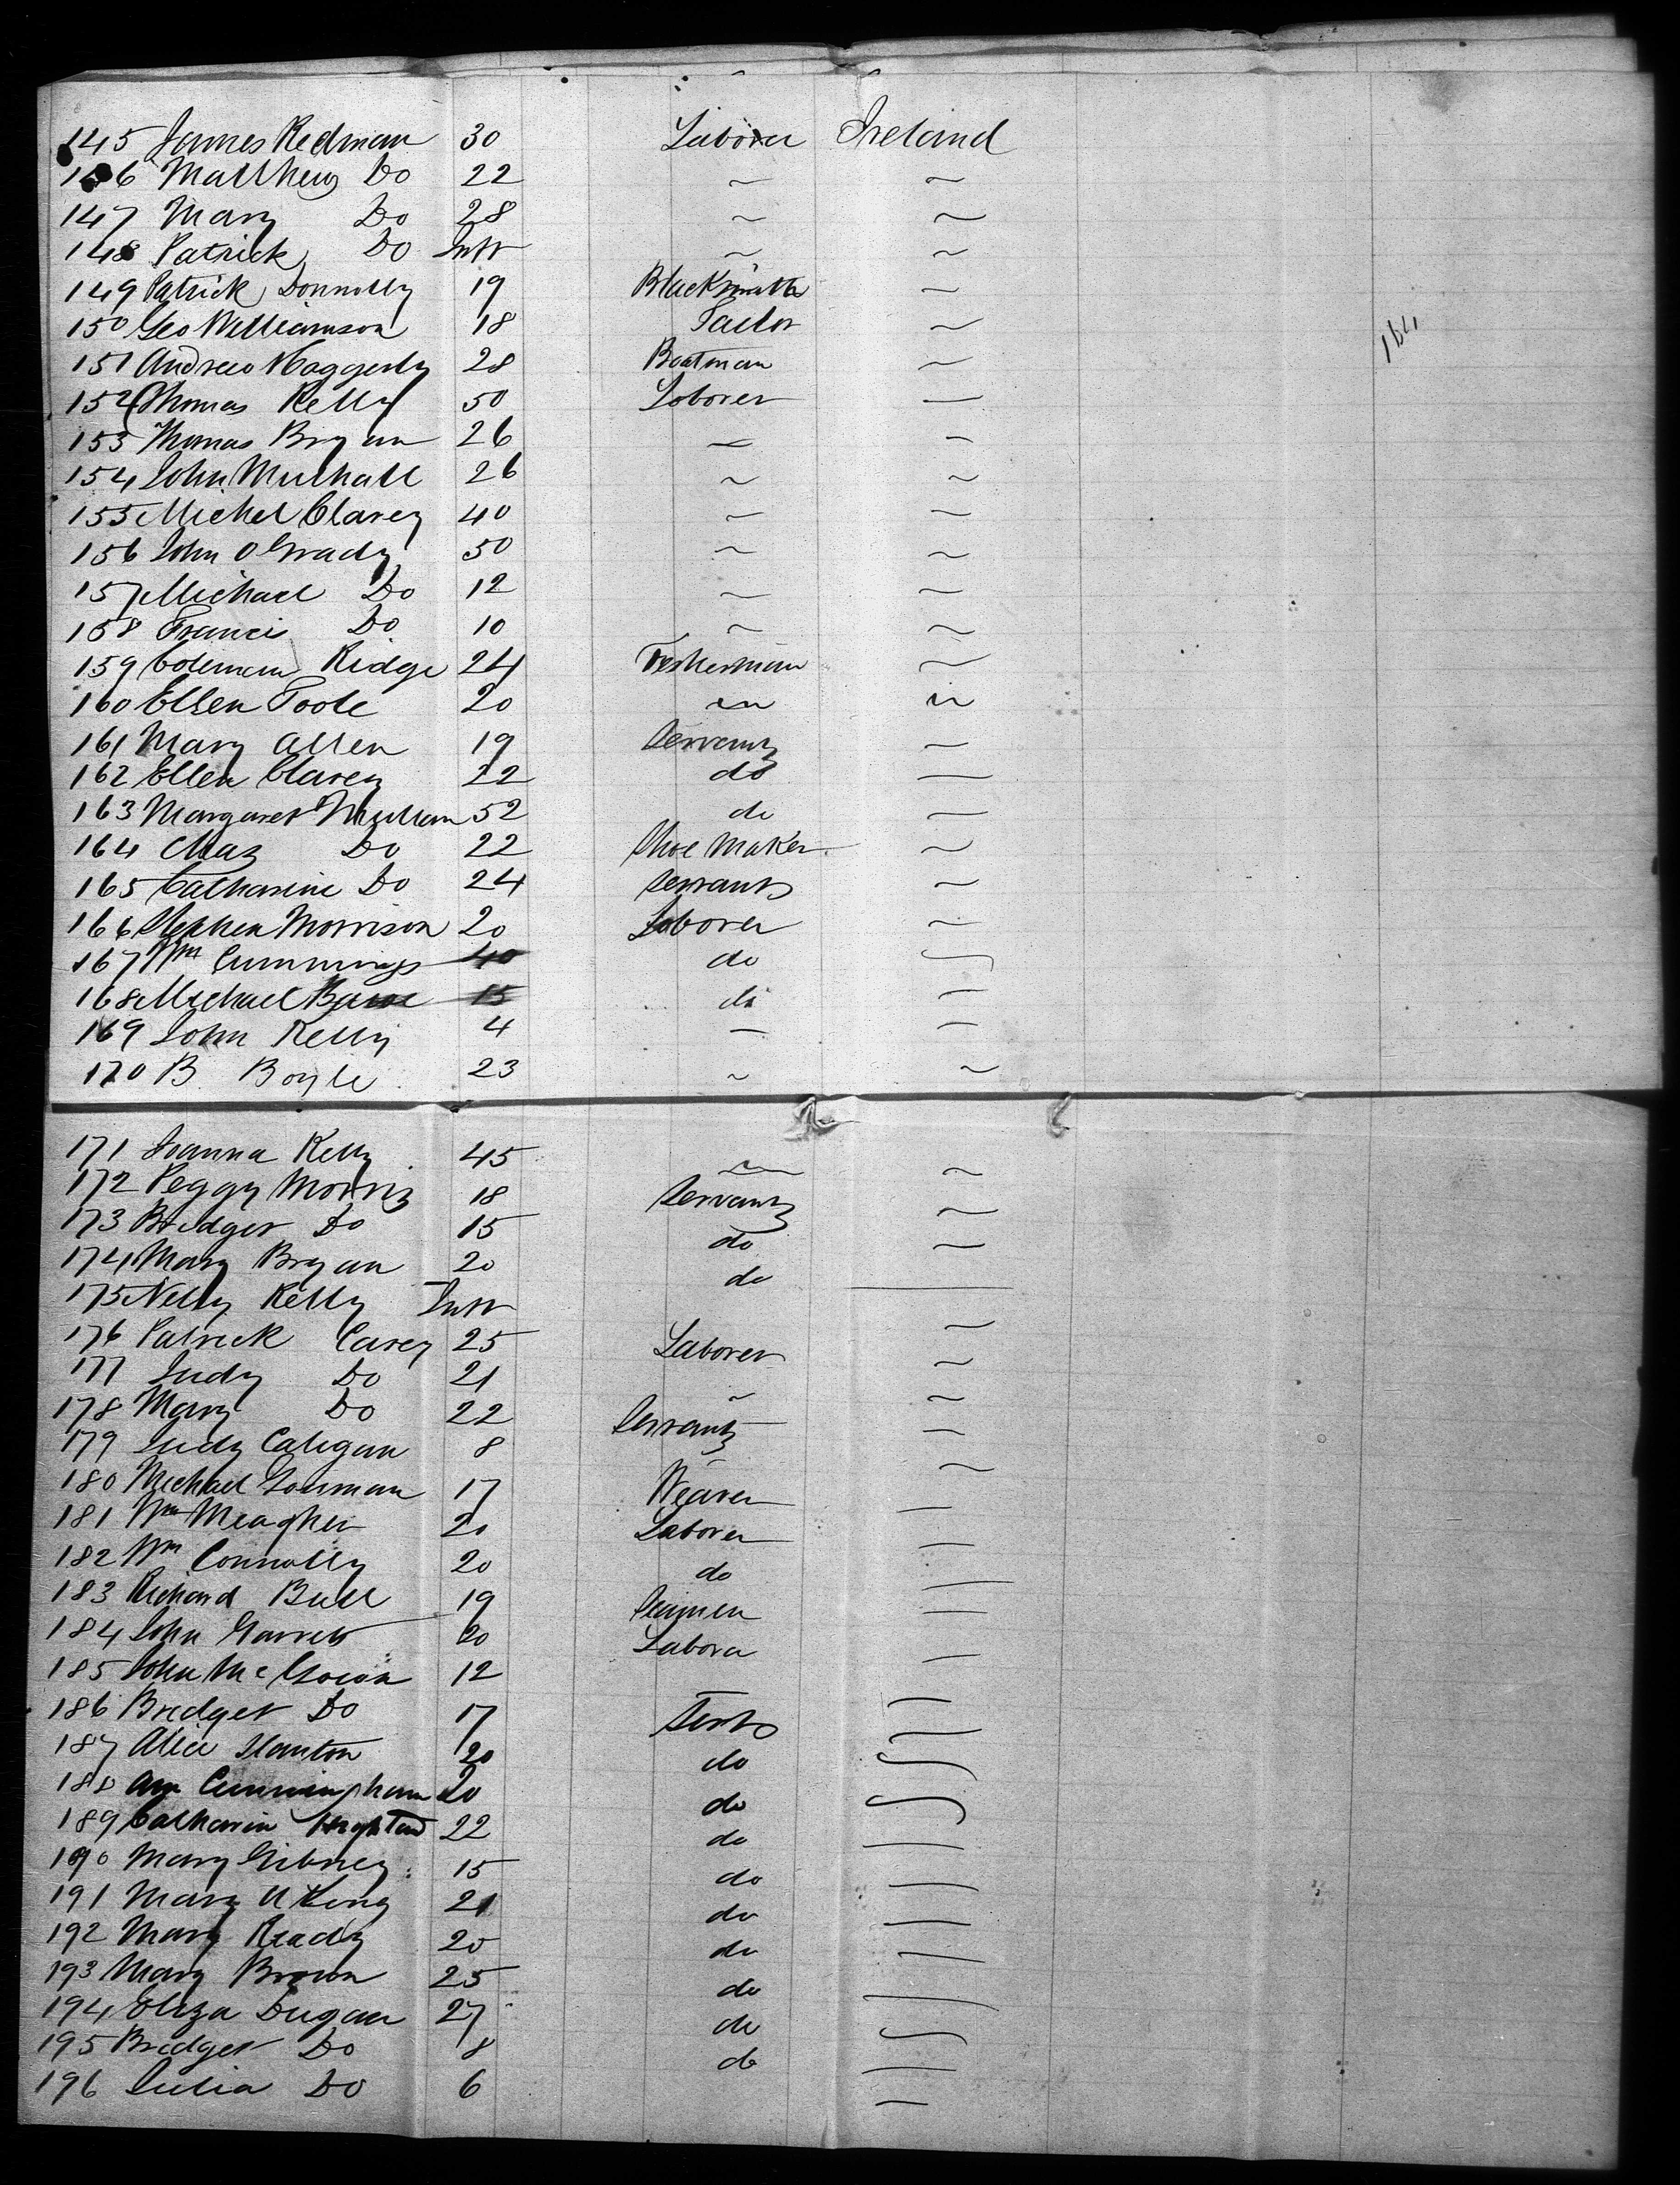 145 James Redman 30 Laborer Ireland
146 Matthew Do 22 ~ ~
147 Mary Do 28 ~ ~
148 Patrick Do Inft ~ ~
149 Patrick Donnolly 19 Blacksmith ~
150 Geo Williamson 18 Tailor ~
151 Andrew Haggerty 28 Boatman ~
152 Thomas Kelly 50 Laborer —
153 Thomas Bryan 26 — ~
154 John Mulhall 26 ~ ~
155 Michel Clarey 40 ~ ~
156 John O Grady 50 ~ ~
157 Michael Do 12 ~ ~
158 Francis Do 10 ~ ~
159 Coleman Ridge 24 Fisherman ~
160 Ellen Toole 20 ~ ~
161 Mary Allen 19 Servant —
162 Ellen Clarey 22 do —
163 Margaret 52 do —
164 Chas Do 22 Shoe Maker ~
165 Catharine Do 24 Servant ~
166 Stephen Morrison 20 Laborer ~
167 Wm Cummings 40 do
168 Michael 15 do —
169 John Kelly 4 — —
170 B. Boyle 23 ~ ~
171 Joanna Kelly 45 ~ ~
172 Peggy Morris 18 Servant ~
173 Bridget Do 15 do ~
174 Mary Bryan 20 do —
175 Nelly Kelly Inft
176 Patrick Carey 25 Laborer ~
177 Judy Do 21 ~ ~
178 Mary Do 22 Servant ~
179 Judy Caligan 8 ~ ~
180 Michael 17 Weaver —
181 Wm Meagher 21 Laborer —
182 Wm Connolly 20 do —
183 Richard Bull 19 Seaman —
184 John Garrett 20 Labora —
185 John Mc Gowan 12 — —
186 Bridget Do 17 Servt —
187 Alice Stanton 20 do
188 Ann Cunningham 20 do
189 Catharin 22 do —
190 Mary Gibney 15 do —
191 Mary A King 21 do —
192 Mary Ready 20 do —
193 Mary Brown 25 do —
194 Eliza Dugan 27 do
195 Bridget Do 8 do —
196 Julia Do 6 —